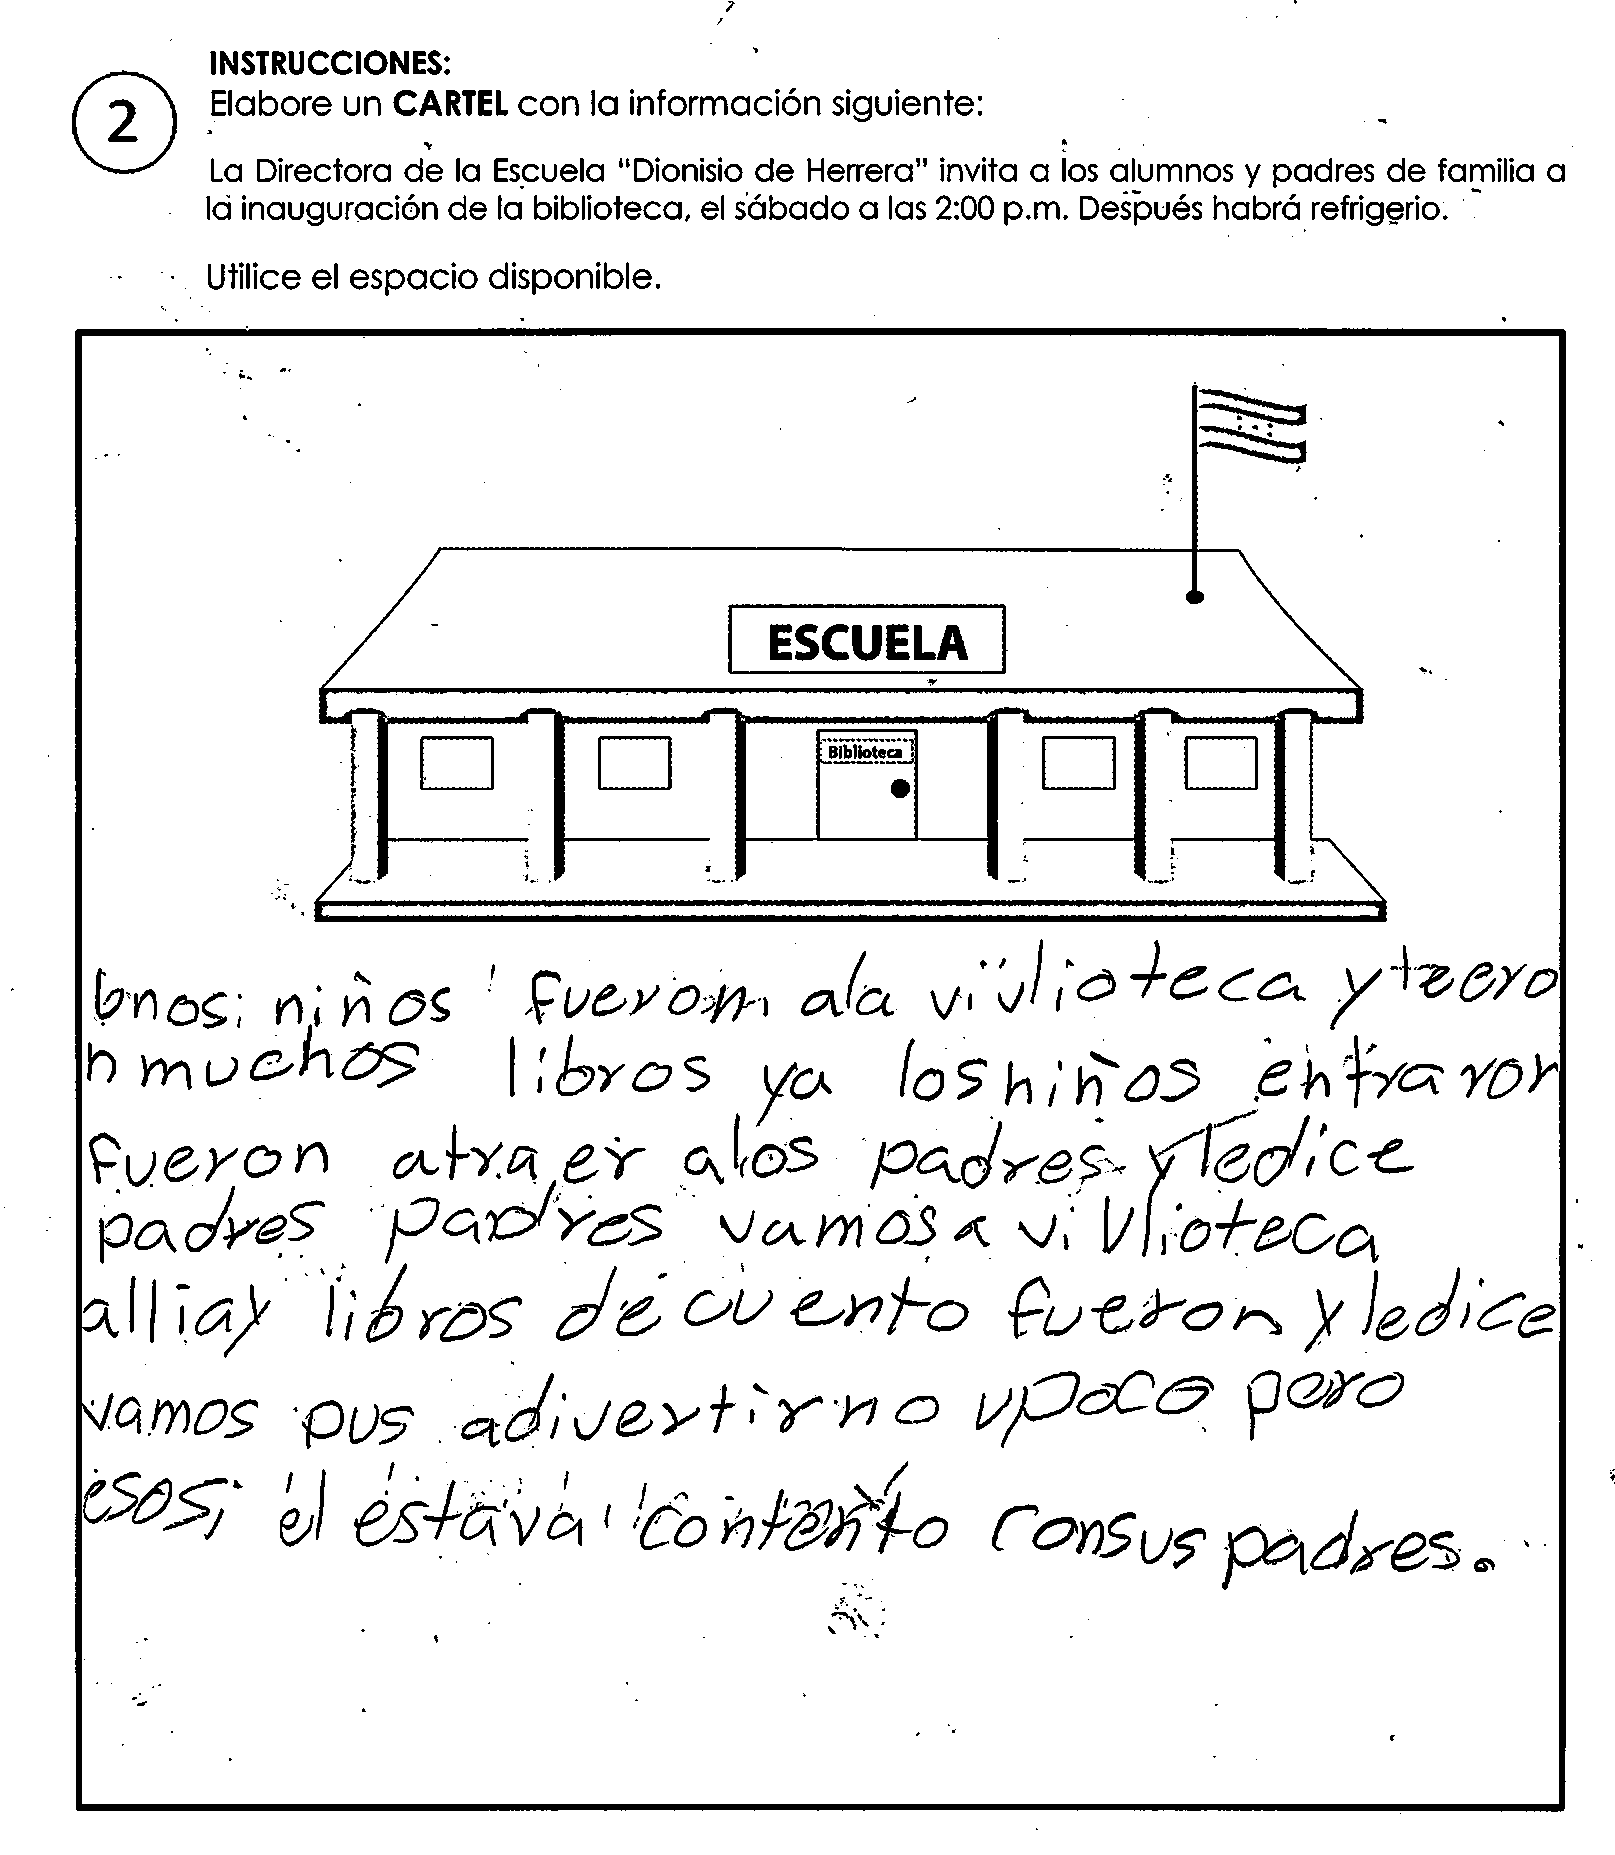 INSTRUCCIONES:
2
Elabore un CARTEL con la información siguiente:
La Directora de la Escuela "Dionisio de Herrera" invita a los alumnos y padres de familia a
la inauguración de la biblioteca, el sábado a las 2:00 p.m. Después habrá refrigerio.
Utilice el espacio disponible.
ESCUELA
Biblioteca
unos niños fuerom ala vivlioteca y
n muchos libros ya los niños entraron
fueron atraer alos padres y ledice
padres padres vamos a vivlioteca
alliay libros de cuento fueron y ledice
vamos pus adivertirno upoco pero
esos el estava contento consus padres.